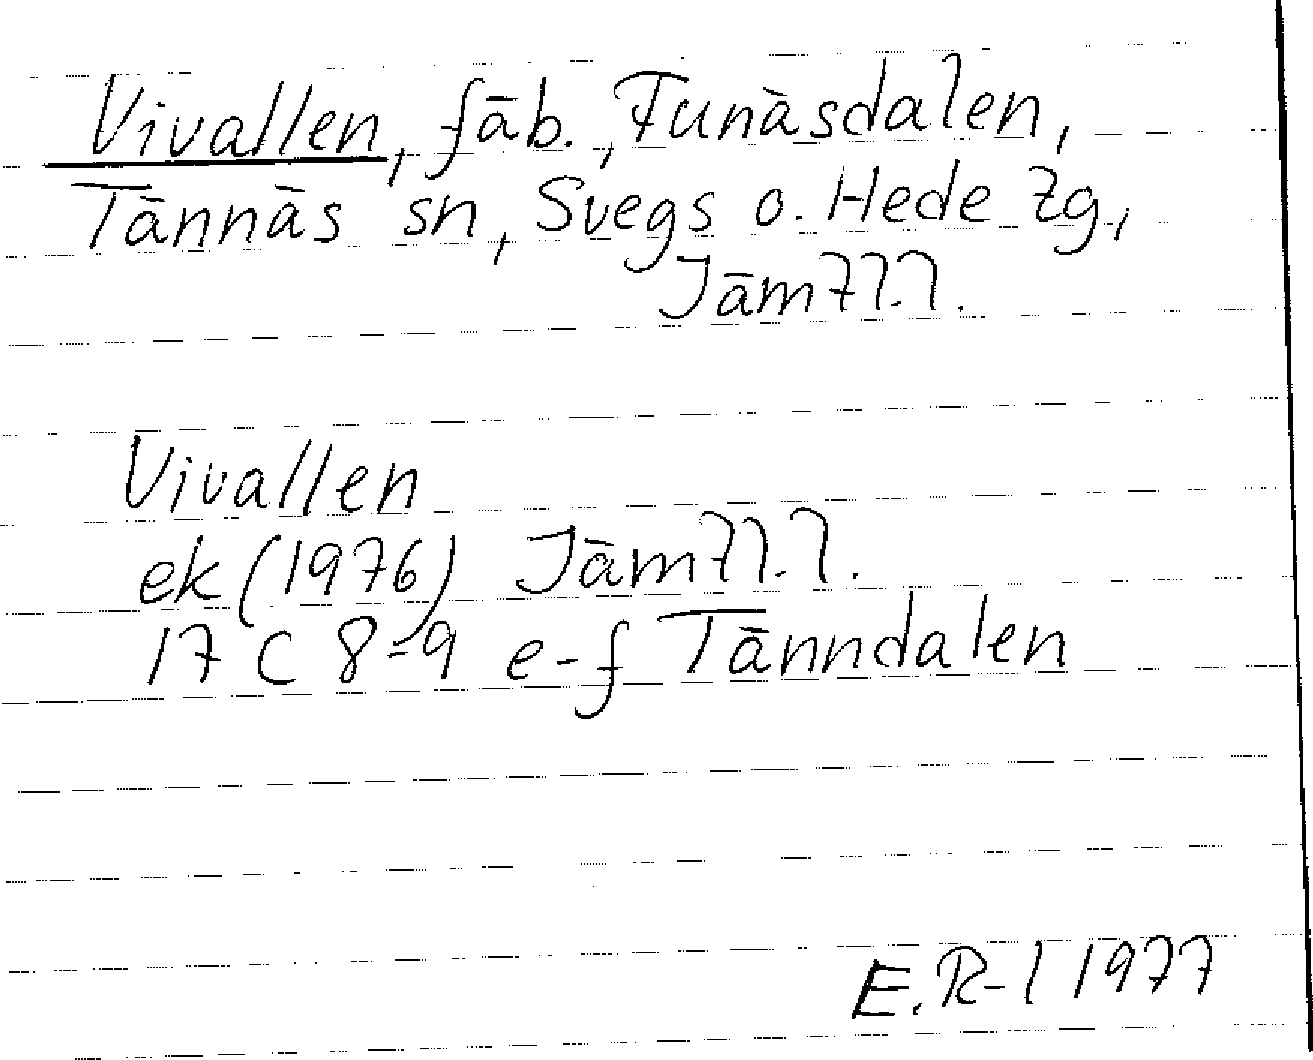 Vivallen, fäb., Funäsdalen,
Tännäs sn, Svegs o. Hede tg.,
Jämtl.l.
Vivallen
ek (1976) Jämtl.l.
17 C 8-9 e-f Tänndalen
E.R-l 1977